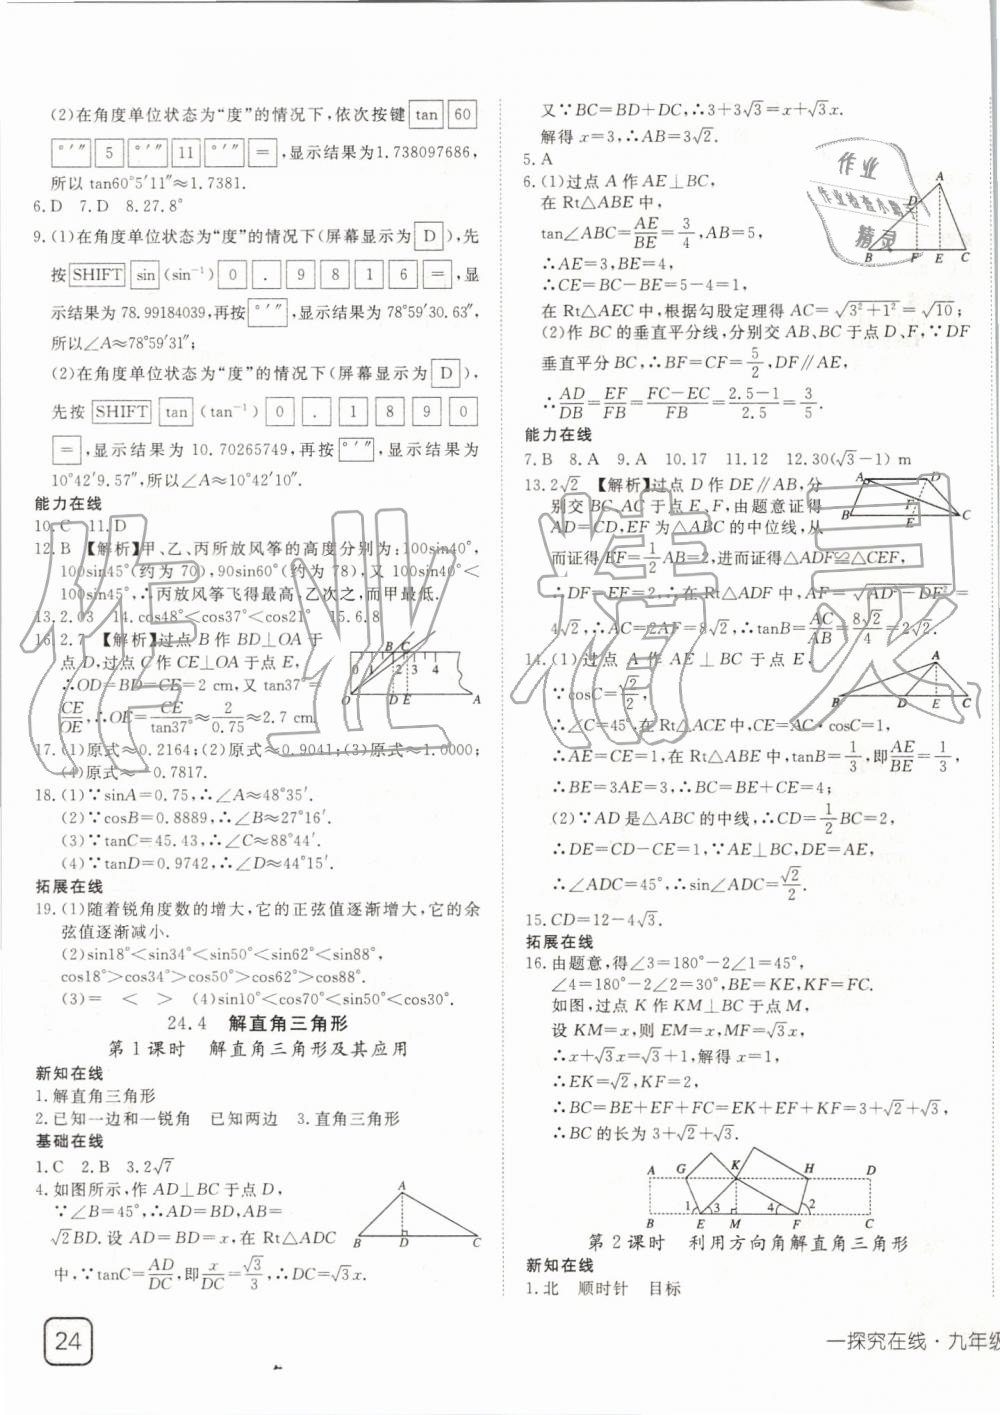 (2)在角度单位状态为“度”的情况下,依次按键 tan 60
°′″ 5 °′″ 11 °′″ =,显示结果为1.738097686,
所以 tan60°5′11″≈1.7381.
6.D 7.D 8.27.8°
9.(1)在角度单位状态为“度”的情况下(屏幕显示为 D ),先
按 SHIFT sin (sin⁻¹) 0 . 9 8 1 6 =,显
示结果为 78.99184039,再按 °′″,显示结果为 78°59′30.63″,
所以∠A≈78°59′31″;
(2)在角度单位状态为“度”的情况下(屏幕显示为 D ),
先按 SHIFT tan (tan⁻¹) 0 . 1 8 9 0
=,显示结果为 10.70265749,再按 °′″,显示结果为
10°42′9.57″,所以∠A≈10°42′10″.
能力在线
10.C 11.D
12.B 【解析】甲、乙、丙所放风筝的高度分别为:100sin40°,
100sin45°(约为 70),90sin60°(约为 78),又 100sin40°<
100sin45°,∴丙放风筝飞得最高,乙次之,而甲最低.
13.2.03 14.cos48°<cos37°<cos21° 15.6.8
16.2.7 【解析】过点 B 作 BD⊥OA 于
点 D,过点 C 作 CE⊥OA 于点 E,
∴OD=BD=CE=2 cm,又 tan37°=
CE/OE,∴OE=CE/tan37°≈2/0.75≈2.7 cm.
B C
0 1 2 3 4
O D E A
17.(1)原式≈0.2164;(2)原式≈0.9041;(3)原式≈1.0000;
(4)原式≈−0.7817.
18.(1)∵sinA=0.75,∴∠A≈48°35′.
(2)∵cosB=0.8889,∴∠B≈27°16′.
(3)∵tanC=45.43,∴∠C≈88°44′.
(4)∵tanD=0.9742,∴∠D≈44°15′.
拓展在线
19.(1)随着锐角度数的增大,它的正弦值逐渐增大,它的余
弦值逐渐减小.
(2)sin18°<sin34°<sin50°<sin62°<sin88°,
cos18°>cos34°>cos50°>cos62°>cos88°.
(3)= < > (4)sin10°<cos70°<sin50°<cos30°.
24.4 解直角三角形
第 1 课时 解直角三角形及其应用
新知在线
1.解直角三角形
2.已知一边和一锐角 已知两边 3.直角三角形
基础在线
1.C 2.B 3.2√7
4.如图所示,作 AD⊥BC 于点 D,
∵∠B=45°,∴AD=BD,AB=
√2BD.设 AD=BD=x,在 Rt△ADC
中,∵tanC=AD/DC,即x/DC=√3/3,∴DC=√3x.
A
B D C
24
又∵BC=BD+DC,∴3+3√3=x+√3x.
解得 x=3,∴AB=3√2.
5.A
6.(1)过点 A 作 AE⊥BC,
在 Rt△ABE 中,
tan∠ABC=AE/BE=3/4,AB=5,
∴AE=3,BE=4,
∴CE=BC−BE=5−4=1,
A
D
B F E C
在 Rt△AEC 中,根据勾股定理得 AC=√(3²+1²)=√10;
(2)作 BC 的垂直平分线,分别交 AB、BC 于点 D、F,∵DF
垂直平分 BC,∴BF=CF=5/2,DF∥AE,
∴AD/DB=EF/FB=(FC−EC)/FB=(2.5−1)/2.5=3/5.
能力在线
7.B 8.A 9.A 10.17 11.12 12.30(√3−1) m
13.2√2 【解析】过点 D 作 DE∥AB,分
别交 BC、AC 于点 E、F,由题意证得
AD=CD,EF 为△ABC 的中位线,从
而证得 EF=1/2AB=2,进而证得△ADF≌△CEF,
∴DF=EF=2,∴在 Rt△ADF 中,AF=√(AD²−DF²)=
4√2,∴AC=2AF=8√2,∴tanB=AC/AB=8√2/4=2√2.
A D
F
B E C
14.(1)过点 A 作 AE⊥BC 于点 E,
∵cosC=√2/2,
∴∠C=45°.在 Rt△ACE 中,CE=AC·cosC=1,
∴AE=CE=1,在 Rt△ABE 中,tanB=1/3,即AE/BE=1/3,
∴BE=3AE=3,∴BC=BE+CE=4;
(2)∵AD 是△ABC 的中线,∴CD=1/2BC=2,
∴DE=CD−CE=1,∵AE⊥BC,DE=AE,
∴∠ADC=45°,∴sin∠ADC=√2/2.
A
B D E C
15.CD=12−4√3.
拓展在线
16.由题意,得∠3=180°−2∠1=45°,
∠4=180°−2∠2=30°,BE=KE,KF=FC.
如图,过点 K 作 KM⊥BC 于点 M,
设 KM=x,则 EM=x,MF=√3x,
∴x+√3x=√3+1,解得 x=1,
∴EK=√2,KF=2,
∴BC=BE+EF+FC=EK+EF+KF=3+√2+√3,
∴BC 的长为 3+√2+√3.
A G K H D
1 3 4 2
B E M F C
第 2 课时 利用方向角解直角三角形
新知在线
1.北 顺时针 目标
一探究在线·九年级
作业
作业检查小助
精灵
作业精灵